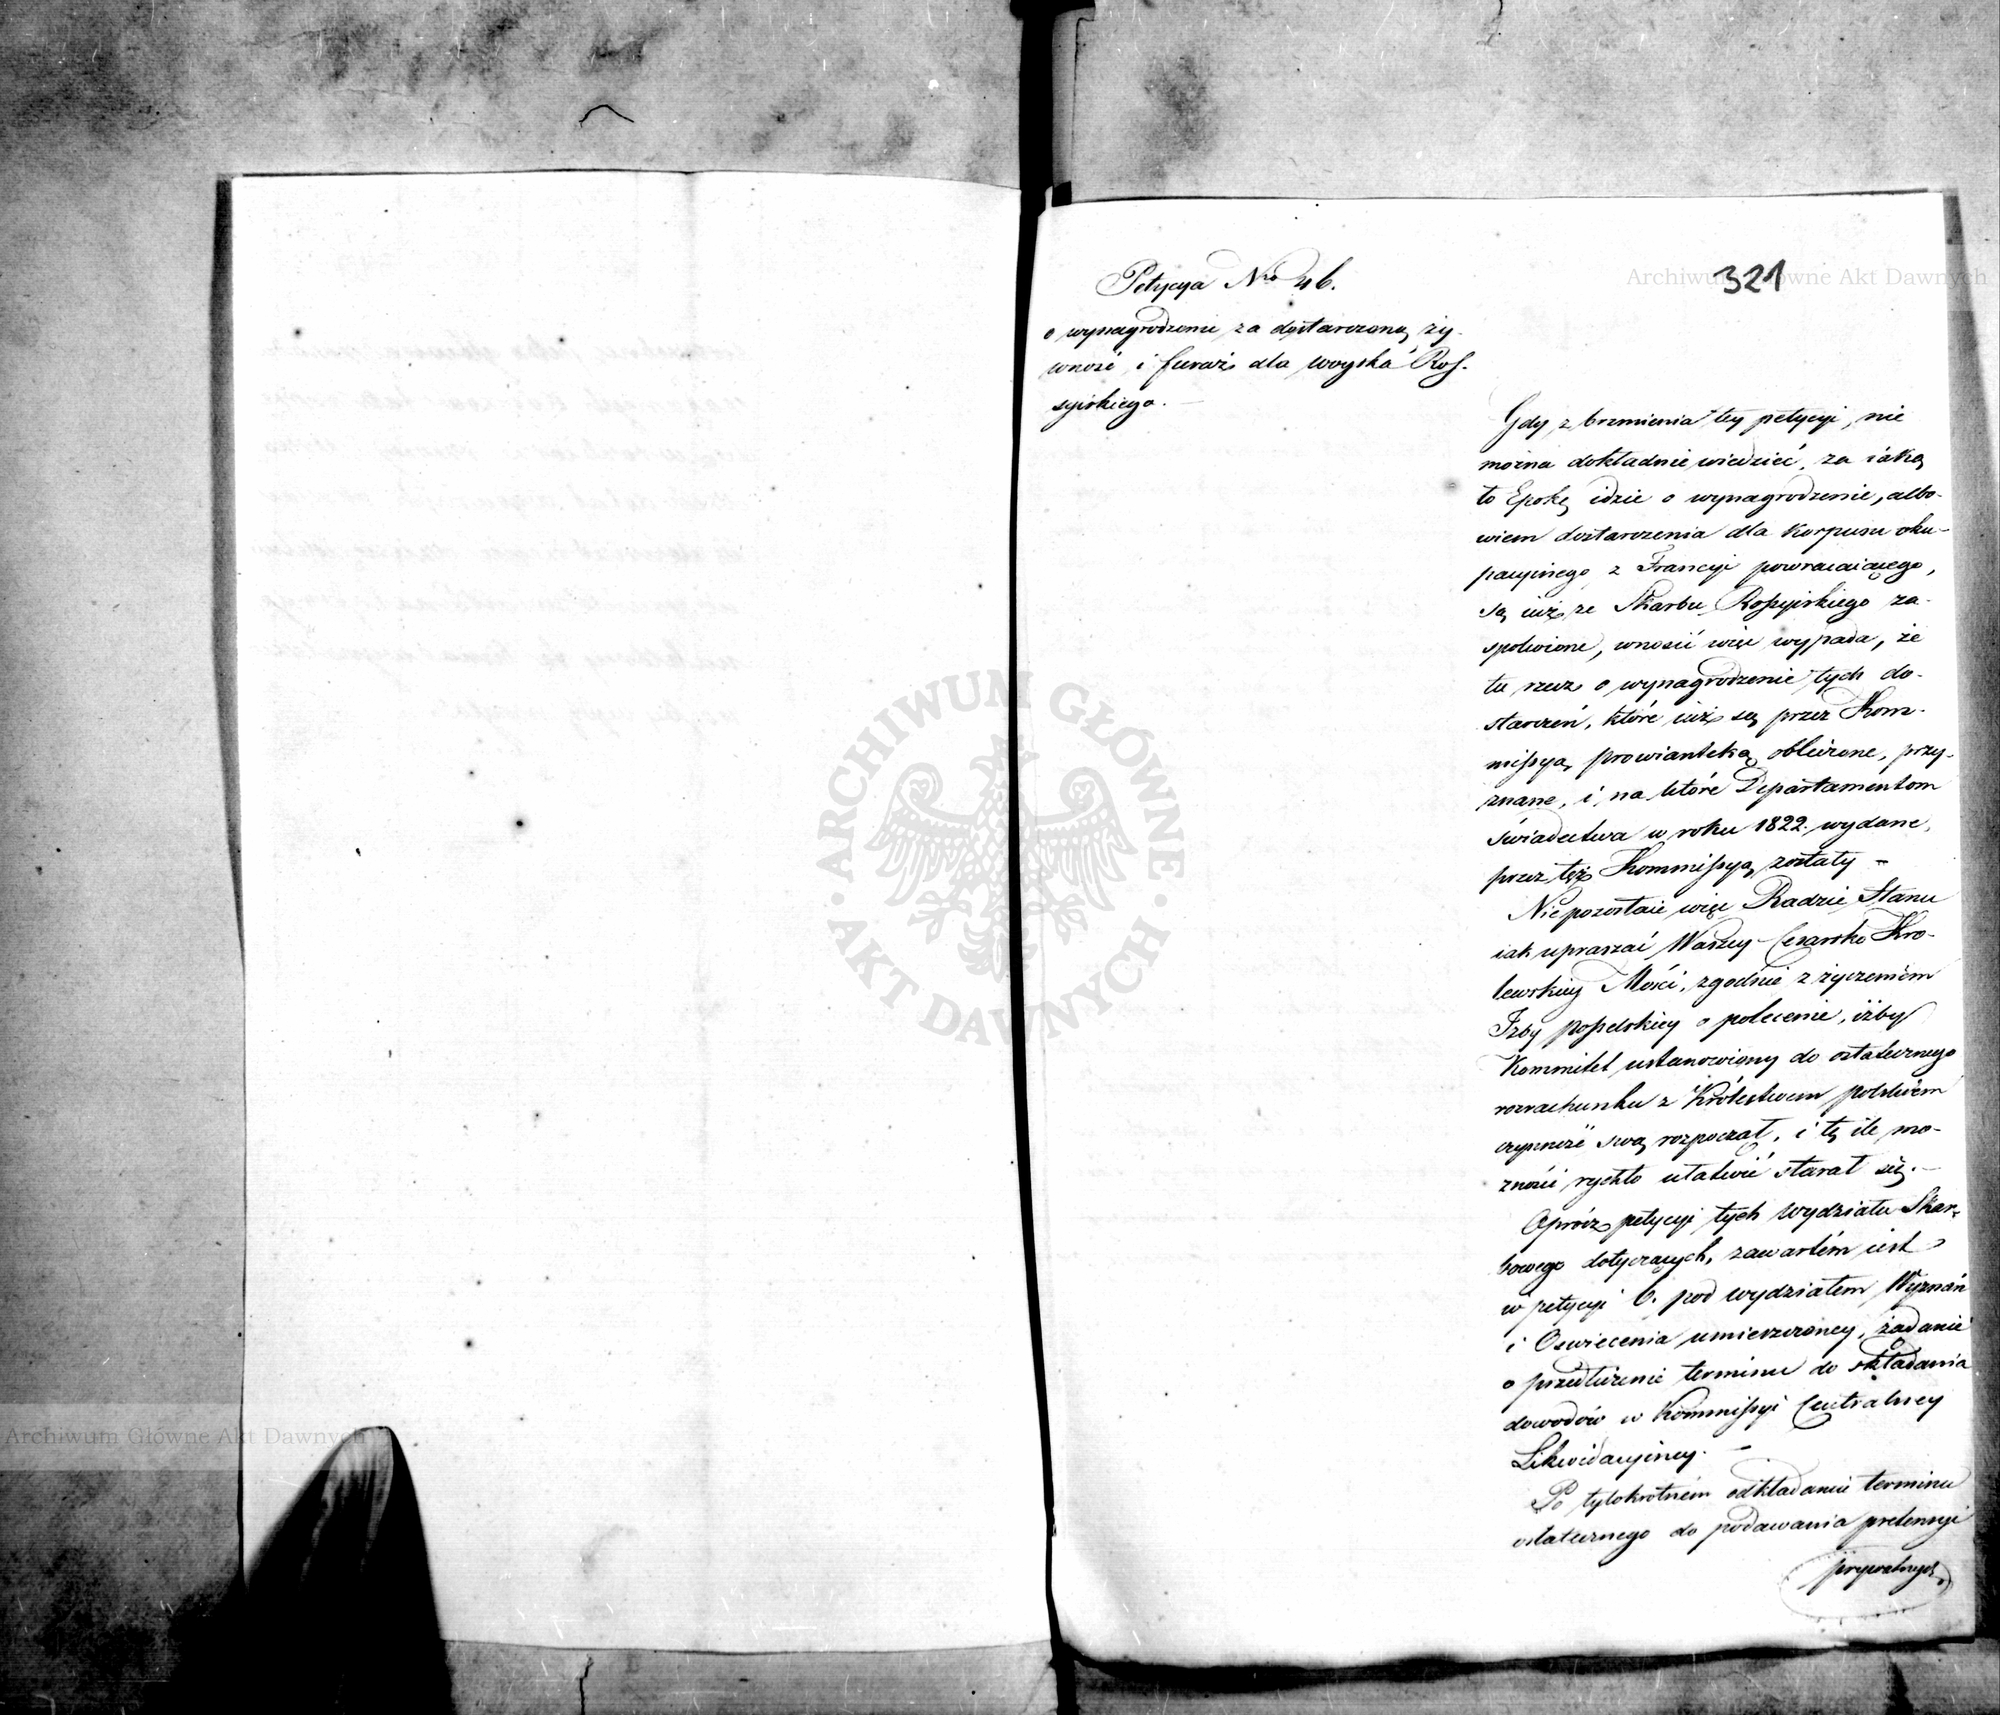 321
Petycya Nro 46.
o wynagrodzenie za dostarczoną ży-
wność i furaż dla woyska Ros-
syiskiego.
Gdy z brzmienia tey petycyi, nie
można dokładnie wiedzieć, za iaką
to Epokę idzie o wynagrodzenie, albo-
wiem dostarczenia dla Korpusu oku-
pacyinego z Francyi powracaiącego,
są iuż ze Skarbu Rossyiskiego za-
spokoione, wnosić więc wypada, że
tu rzecz o wynagrodzenie tych do-
starczeń, które iuż są przez Kom-
missyą prowiantską obliczone, przy-
znane, i na które Departamentom
świadectwa w roku 1822. wydane,
przez też Kommissyą zostały –
Niepozostaie więc Radzie Stanu
iak upraszać Waszey Cesarsko Kro-
lewskiey Mości, zgodnie z życzeniem
Izby poselskiey o polecenie, iżby
Kommitet ustanowiony do ostatecznego
rozrachunku z Królestwem polskiem
czynność swą rozpoczął, i tę ile mo-
żności rychło ułatwić starał się. –
Oprócz petycyi tych wydziału Skar-
bowego dotyczących, zawartém iest
w petycyi 6. pod wydziałem Wyznań
i Oswiecenia umieszczoney, żądanie
o przedłużenie terminu do składania
dowodów w Kommissyi Centralney
Likwidacyiney. –
Po tylokrotném odkładaniu terminu
ostatecznego do podawania pretensyi
prywatnych,
ARCHIWUM GŁÓWNE
AKT DAWNYCH
Archiwum Główne Akt Dawnych
Archiwum Główne Akt Dawnych